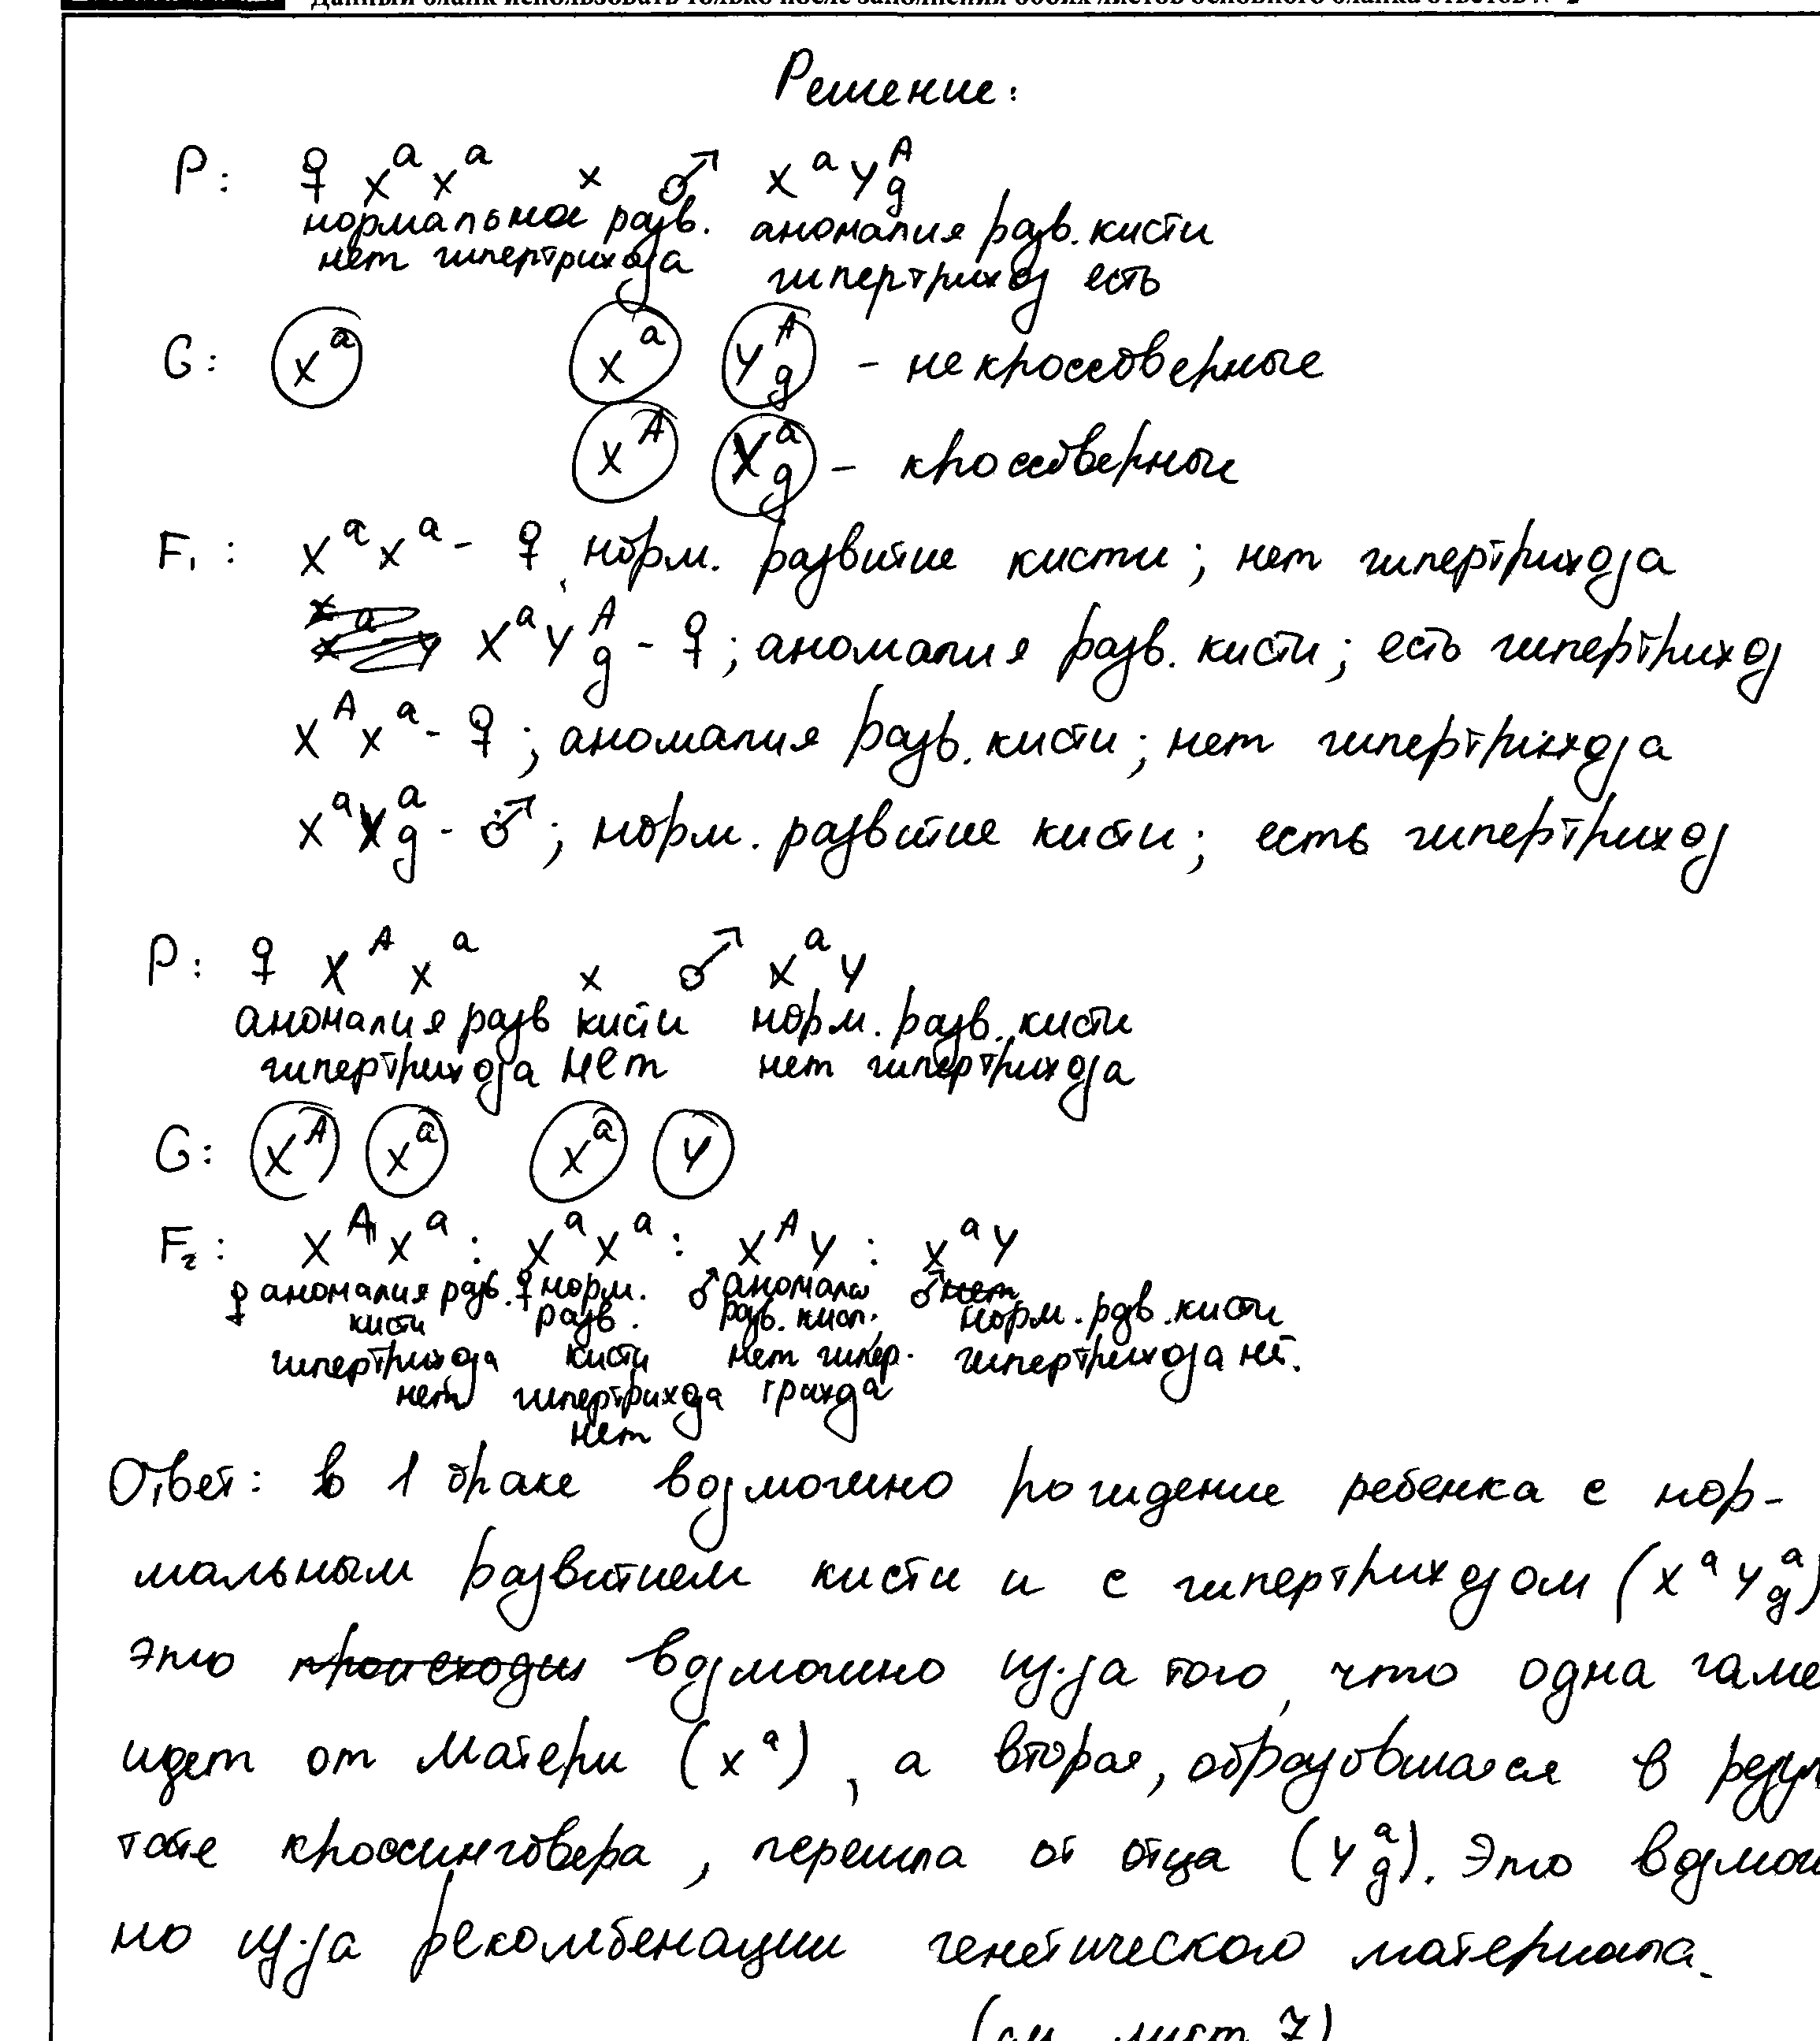 Данный бланк использовать только после заполнения обоих листов основного бланка ответов № 2
Решение:
P: ♀ XᵃXᵃ × ♂ XᵃY^A_g
нормальное разв. аномалия разв. кисти
нет гипертрихоза гипертрихоз есть
G: Xᵃ Xᵃ Y^A_g – некроссоверные
X^A Y^a_g – кроссоверные
F₁: XᵃXᵃ - ♀ норм. развитие кисти; нет гипертрихоза
XᵃY^A_g - ♀; аномалия разв. кисти; есть гипертрихоз
X^AXᵃ - ♀; аномалия разв. кисти; нет гипертрихоза
XᵃY^a_g - ♂; норм. развитие кисти; есть гипертрихоз
P: ♀ X^AXᵃ × ♂ XᵃY
аномалия разв кисти норм. разв. кисти
гипертрихоза нет нет гипертрихоза
G: X^A Xᵃ Xᵃ Y
F₂: X^AXᵃ : XᵃXᵃ : X^AY : XᵃY
♀ аномалия разв. ♀ норм. ♂ аномалия ♂ нет
кисти разв. разв. кист. норм. разв. кисти
гипертрихоза кисти нет гипер- гипертрихоза нет.
нет гипертрихоза трихоза
нет
Ответ: в 1 браке возможно рождение ребенка с нор-
мальным развитием кисти и с гипертрихозом (XᵃY^a_g)
Это происходи возможно из-за того, что одна гаме
идет от матери (Xᵃ), а вторая, образовшаяся в резул
тате кроссинговера, перешла от отца (Y^a_g). Это возмож
но из-за рекомбенации генетического материала.
(см. лист 7)